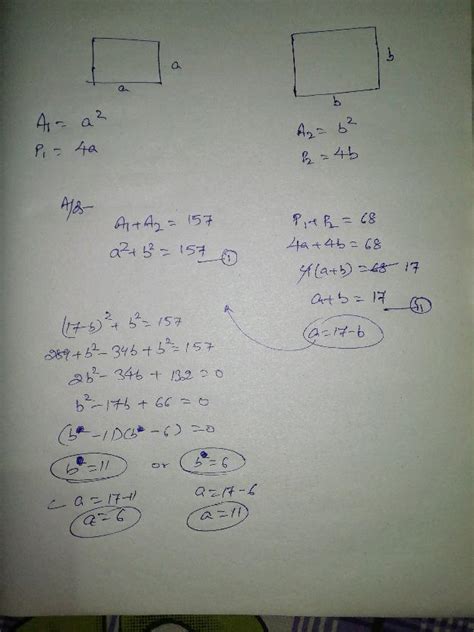 a
a
b
b
A₁ = a²
P₁ = 4a
A₂ = b²
P₂ = 4b
A/Q
A₁+A₂ = 157
a²+b² = 157 ①
P₁+P₂ = 68
4a+4b = 68
4(a+b) = 68 17
a+b = 17 ②
a=17-b
(17-b)² + b² = 157
289+b²-34b+b² = 157
2b²-34b+132 = 0
b²-17b+66 = 0
(b-11)(b-6) = 0
b=11 or b=6
a=17-11 a=17-6
a=6 a=11